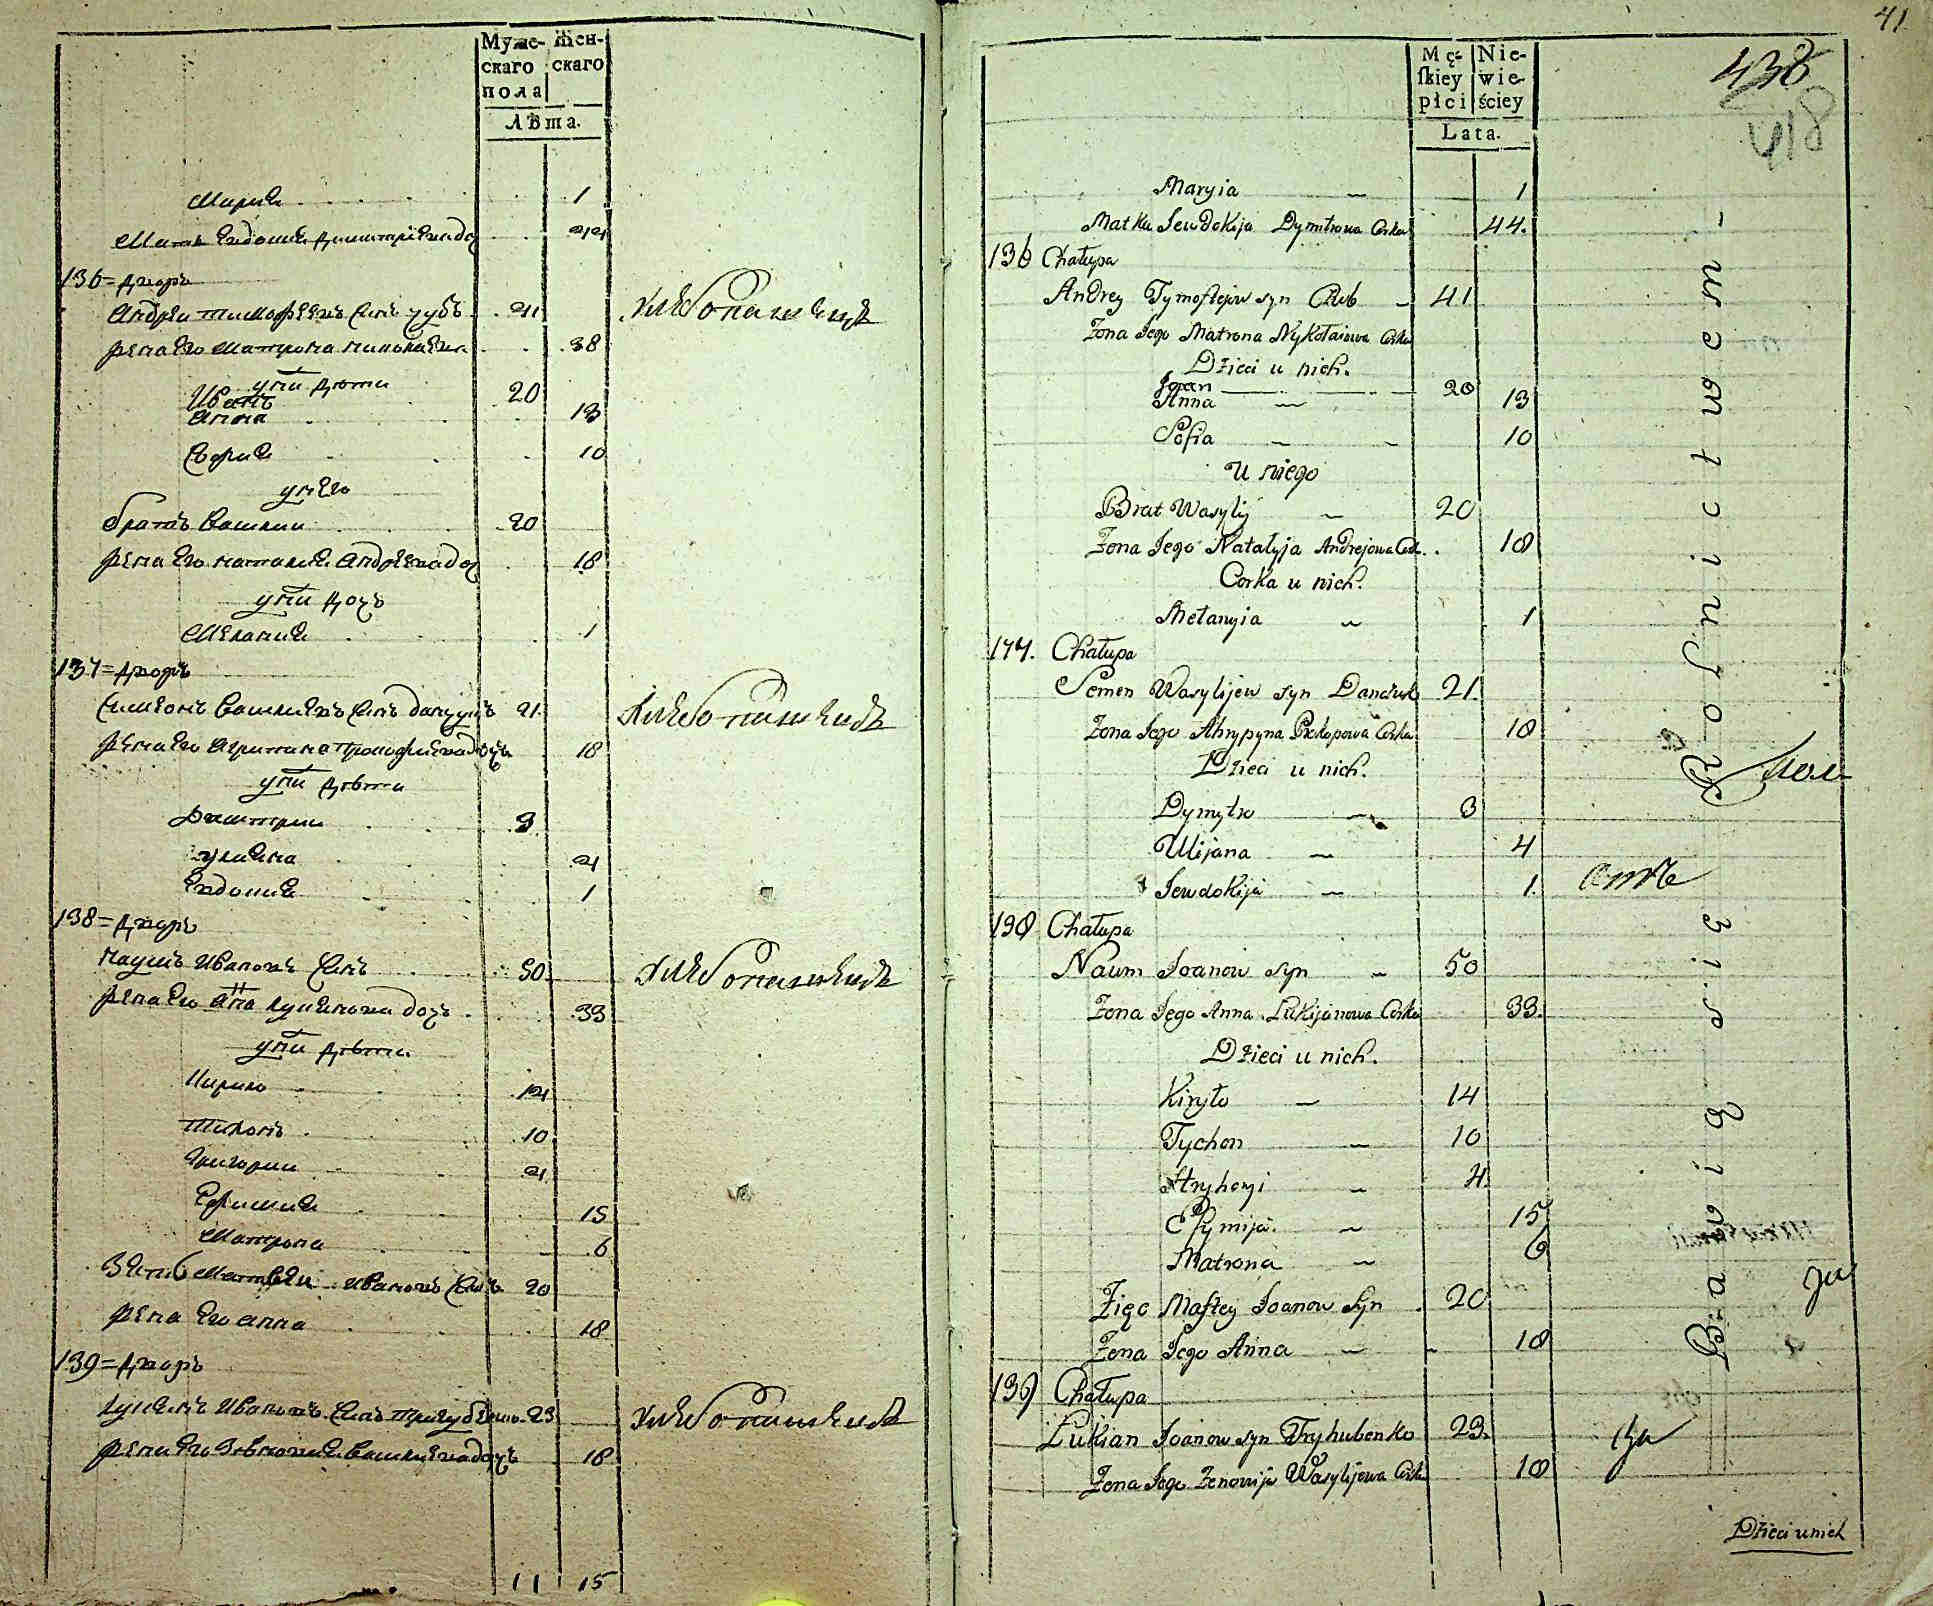 Муже-
скаго
пола
Жен-
скаго
Лѣта.
Мария 1
Мать Евдокия Дмитриева доч 44
136 = дворъ
Андрей Тимофеевъ сынъ Зубъ 41 хлебопашецъ
жена его Матрона Николаева 38
у них дети
Иванъ 20
Анна 13
София 10
у него
братъ Василий 20
жена его Наталия Андреева доч 18
у них дочь
Мелания 1
137 = дворъ
Симеонъ Васильевъ сынъ 21 хлебопашецъ
жена его Агрипина Прокофиева дочь 18
у них дети
Димитрий 3
Улияна 4
Евдокия 1
138 = дворъ
Наумъ Ивановъ сынъ 50 хлебопашецъ
жена его Анна Лукьянова дочь 33
у них дети
Кирило 14
Тихонъ 10
Григорий 4
Ефимия 15
Матрона 6
Зять Матвей Ивановъ сынъ 20
жена его Анна 18
139 = дворъ
Лукьянъ Ивановъ сынъ Тригубенко 23 хлебопашецъ
жена его Зеновия Васильева дочь 18
11 15
41
438
418
Mę-
skiey
płci
Nie-
wie-
ściey
Lata.
Maryia 1
Matka Jewdokija Dymitrowa Corka 44.
136 Chałupa
Andrey Tymoftejow syn 41
Zona Jego Matrona Nykołaiowa Corka
Dzieci u nich.
Joan 20
Anna 13
Sofia 10
u niego
Brat Wasylij 20
Zona Jego Natalyja Andrejowa Cor. 18
Corka u nich.
Mełanyia 1
177. Chałupa
Semen Wasylijew syn Danczuk 21.
Zona Jego Ahrypyna Prokopowa Corka 18
Dzieci u nich.
Dymytro 3
Ulijana 4
Jewdokija 1.
138 Chałupa
Naum Joanow syn 50
Zona Jego Anna Lukijanowa Corka 33.
Dzieci u nich.
Kiryło 14
Tychon 10
Hryhoryi 4.
Efymija. 15
Matrona 6
Zięc Maftey Joanow Syn 20
Zona Jego Anna 18
139 Chałupa
Łukian Joanow syn Tryhubenko 23.
Zona Jego Zenowija Wasylijowa Corka 18
Bawią się Rolnictwem
Dzieci u nich